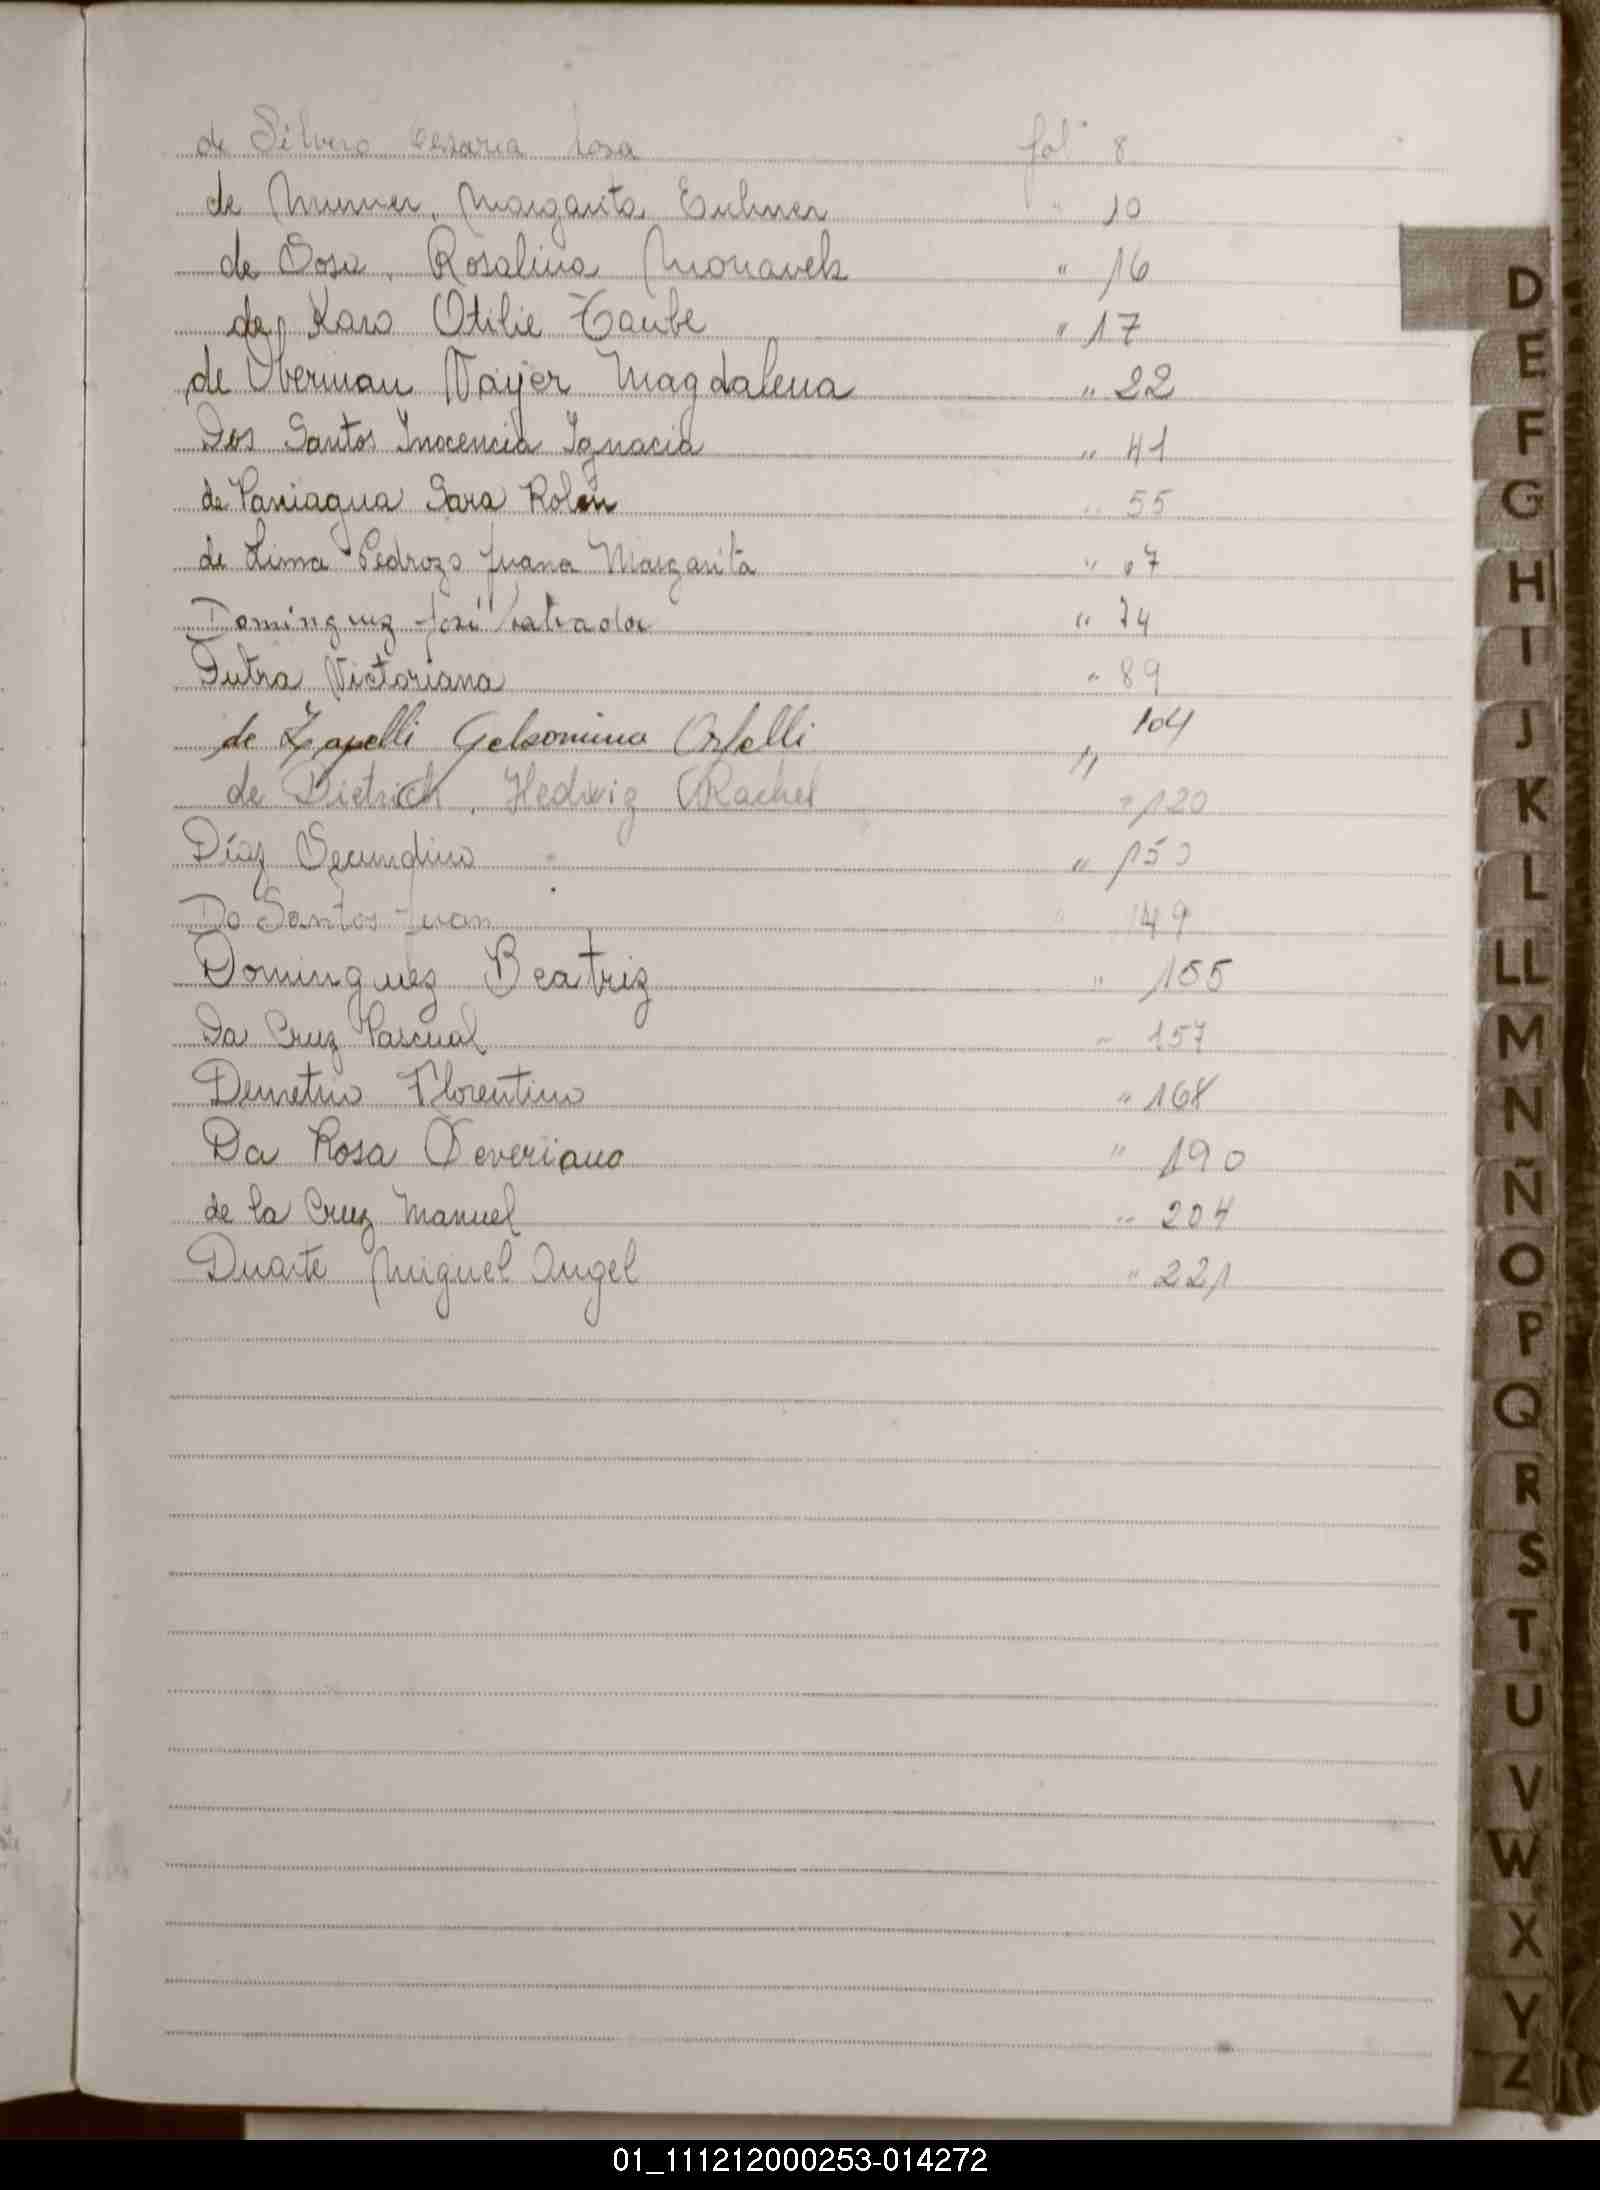 de Silvero Cesaria Rosa fol 8
de Margarita " 10
de Sosa, Rosalina " 16
de Karo Otilie Taube " 17
de Oberman Vayer Magdalena " 22
Dos Santos Inocencia Ignacia " 41
de Paniagua Sara Rolón " 55
de Lima Pedrozo Juana Margarita " 67
Dominguez José Salvador " 74
Dutra Victoriana " 89
de Zapelli Gelsomina Orfelli " 104
de Dietrich, Hedwig Rachel " 120
Díaz Secundino " 150
Do Santos Juan " 149
Dominguez Beatriz " 155
Da Cruz Pascual " 157
Demetrio Florentino " 168
Da Rosa Severiano " 190
de la Cruz Manuel " 204
Duarte Miguel Angel " 221
D
E
F
G
H
I
J
K
L
LL
M
N
Ñ
O
P
Q
R
S
T
U
V
W
X
Y
Z
01_111212000253-014272